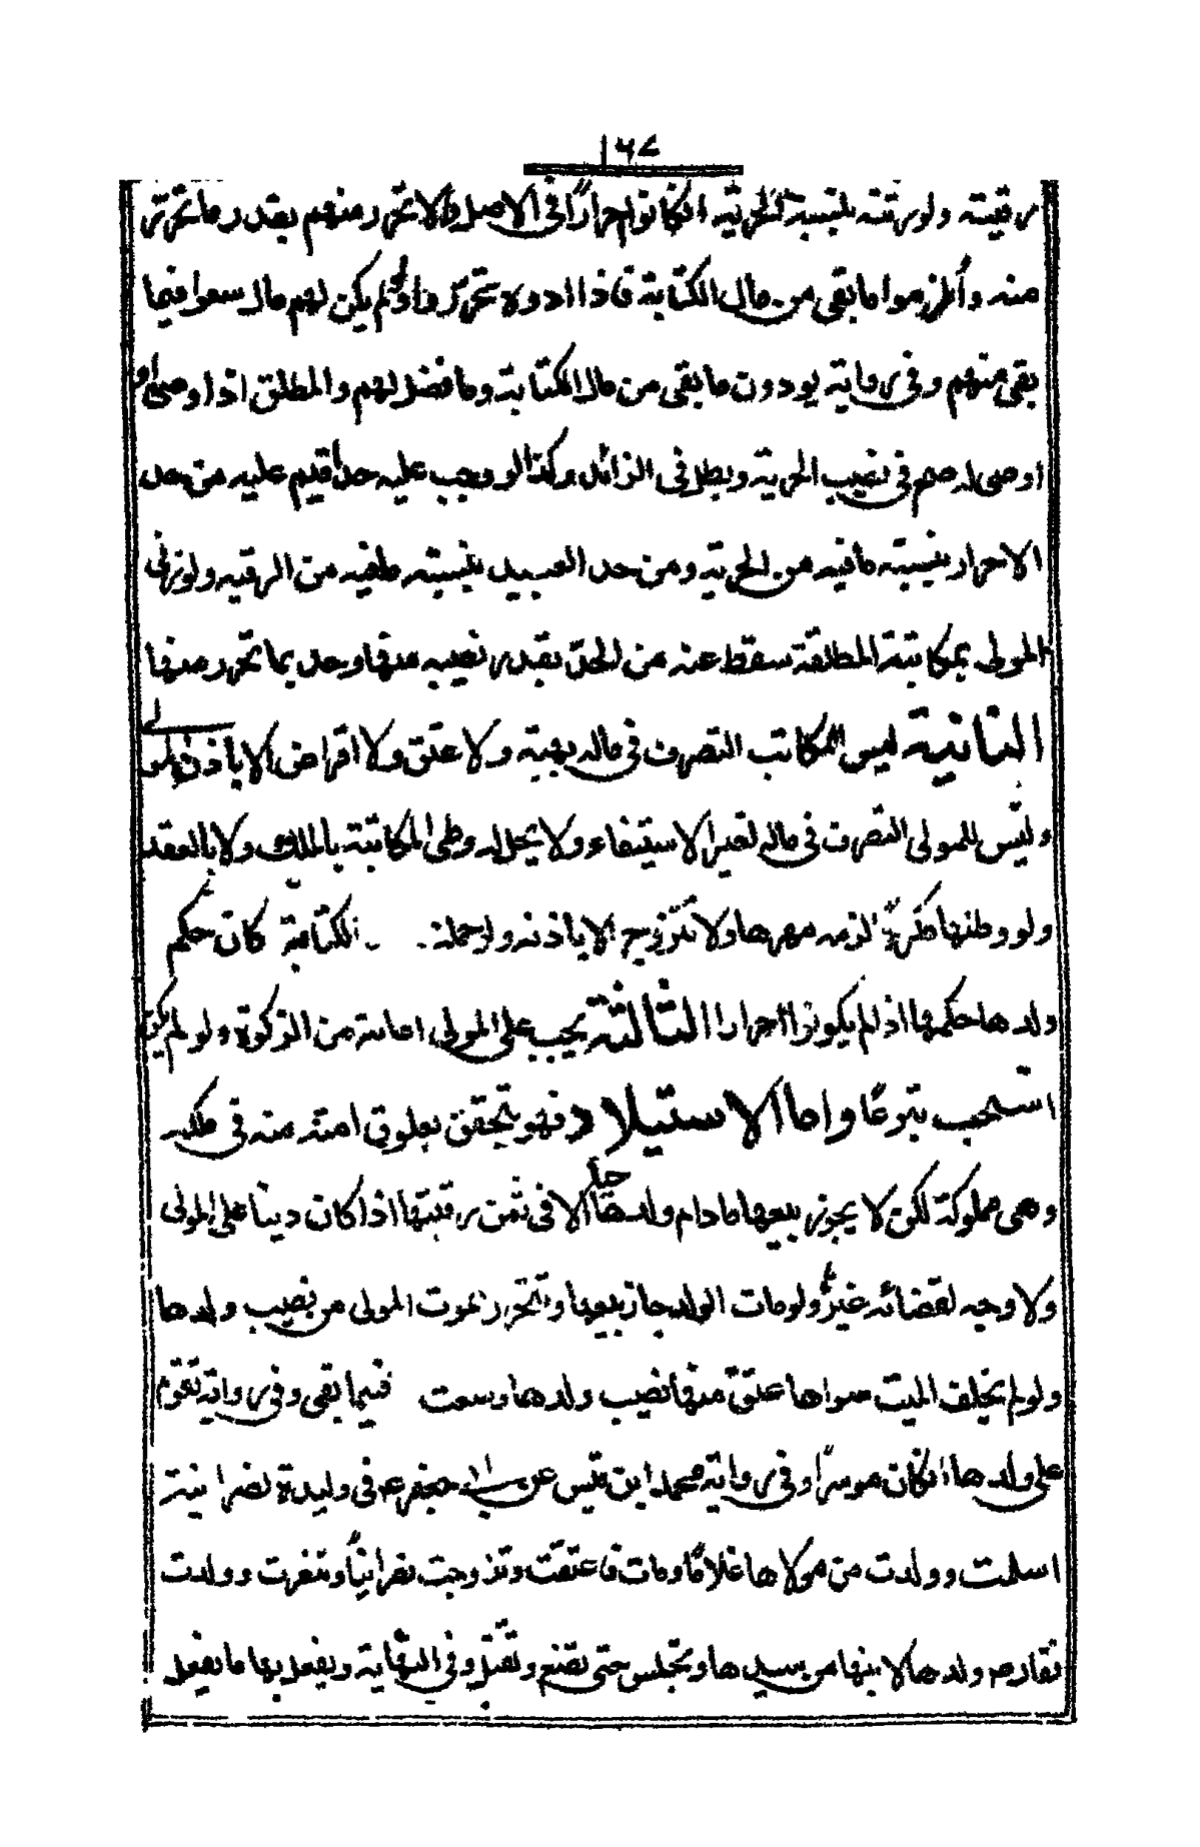 ١٦٧
رقيته ولورثته بنسبة الحرية انكانوا احراراً في الاصل والا تحرر منهم بقدر ما تحرر
منه وأُلزموا ما بقى من مال الكتابة فاذا ادوه تحرروا ولو لم يكن لهم مال سعوا فيما
بقى منهم وفي رواية يودون ما بقى من مال المكتابة وما فضل لهم والمطلق اذا اوصى او
اوصى له صح في نصيب الحرية وبطل في الزائد وكذا لو وجب عليه حد اقيم عليه من حد
الاحرار بنسبة ما فيه من الحرية ومن حد العبيد بنسبة ما فيه من الرقيه ولو زنى
المولى بمكاتبته المطلقة سقط عنه من الحد بقدر نصيبه منها وحد بما تحرر منها
الثانية ليس للمكاتب التصرف في ماله بهبة ولا عتق ولا اقراض الا باذن المولى
وليس للمولى التصرف في ماله لغير الاستيفاء ولا يحل له وطى المكاتبة بالملك ولا بالعقد
ولو وطئها مكرهة لزمه مهرها ولا تتزوج الا باذنه ولو حملت الكتابة كان حكم
ولدها حكمها اذا لم يكونوا احرارا الثالثة يجب على المولى اعانته من الزكوة ولو لم يكن
استحب تبرعًا واما الاستيلاد فهو يتحقق بعلوق امته منه في ملكه
وهى مملوكة لكن لا يجوز بيعها ما دام ولدها حيا الا في ثمن رقبتها اذا كان دينا على المولى
ولا وجه لقضائه غيرها ولو مات الولد جاز بيعها وتتحرر بموت المولى من نصيب ولدها
ولو لم يخلف الميت سواها عتق منها نصيب ولدها وسعت فيما بقى وفي رواية تقوم
على ولدها انكان موسرًا وفي رواية محمد ابن قيس عن ابى جعفر ع في وليدة نصرانية
اسلمت وولدت من مولاها غلامًا ومات فاعتقت وتزوجت نصرانياً وتنصرت وولدت
فقال ع ولدها لابنها من سيدها وتحبس حتى تضع وتقتل وفي النهاية ويفعل بها ما يفعل